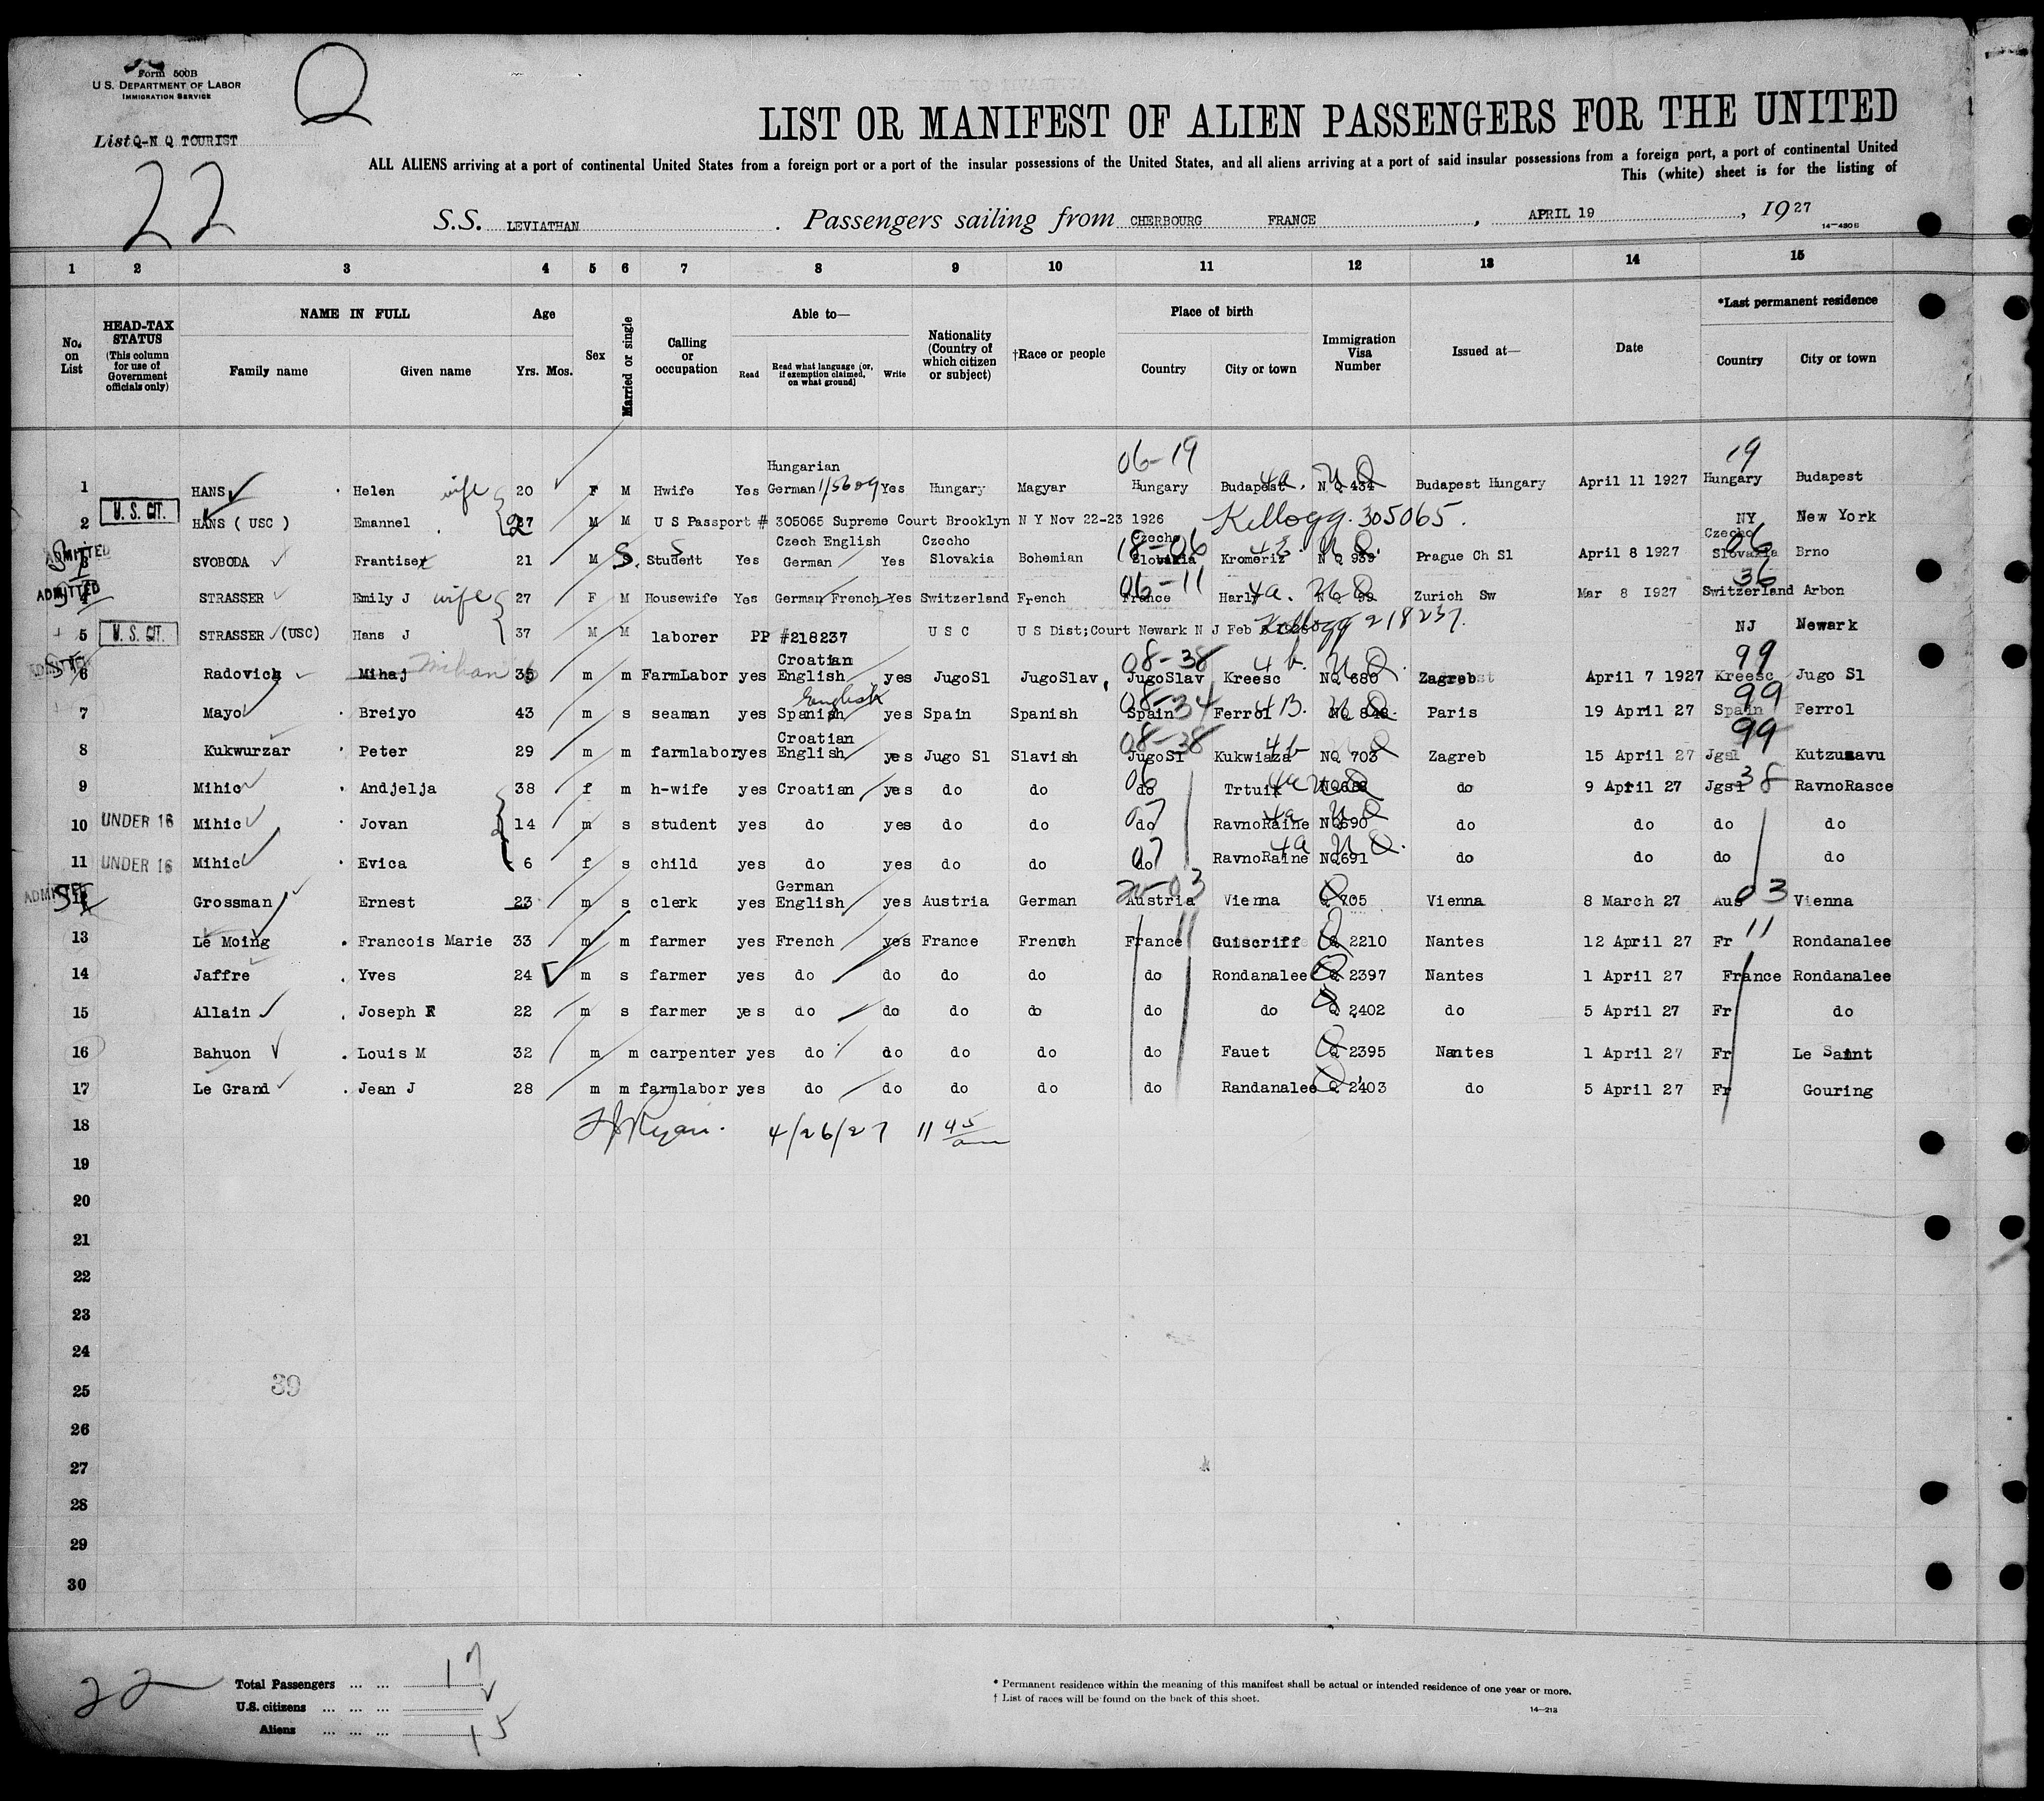 Form 500B
U.S. DEPARTMENT OF LABOR
IMMIGRATION SERVICE
Q
List Q-N Q TOURIST
22
LIST OR MANIFEST OF ALIEN PASSENGERS FOR THE UNITED
ALL ALIENS arriving at a port of continental United States from a foreign port or a port of the insular possessions of the United States, and all aliens arriving at a port of said insular possessions from a foreign port, a port of continental United
This (white) sheet is for the listing of
S.S. LEVIATHAN . Passengers sailing from CHERBOURG FRANCE , APRIL 19 , 1927
14—430B
1 2 3 4 5 6 7 8 9 10 11 12 13 14 15
No. on List
HEAD-TAX STATUS (This column for use of Government officials only)
NAME IN FULL
Family name Given name
Age
Yrs. Mos.
Sex
Married or single
Calling or occupation
Able to—
Read Read what language (or, if exemption claimed, on what ground) Write
Nationality (Country of which citizen or subject)
†Race or people
Place of birth
Country City or town
Immigration Visa Number
Issued at—
Date
*Last permanent residence
Country City or town
06-19 19
1 HANS Helen wife 20 F M Hwife Yes Hungarian German 115609 Yes Hungary Magyar Hungary Budapest 4a. N Q N Q 434 Budapest Hungary April 11 1927 Hungary Budapest
U. S. CIT.
2 HANS ( USC ) Emannel 27 M M U S Passport # 305065 Supreme Court Brooklyn N Y Nov 22-23 1926 Kellogg. 305065. NY New York
ADMITTED
3 SVOBODA Frantisek 21 M S. Student Yes Czech English German Yes Czecho Slovakia Bohemian Czecho Slovakia 18-06 Kromeriz N Q 939 Prague Ch Sl April 8 1927 Czecho Slovakia 06 Brno
ADMITTED
4 STRASSER Emily J wife 27 F M Housewife Yes German French Yes Switzerland French France 06-11 4a. N Q 99 Zurich Sw Mar 8 1927 Switzerland 36 Arbon
5 U. S. CIT. STRASSER (USC) Hans J 37 M M laborer PP #218237 U S C U S Dist;Court Newark N J Feb Kellogg 218237. NJ Newark
ADMITTED
6 Radovich Mihaj 35 m m FarmLabor yes Croatian English yes JugoSl JugoSlav JugoSlav 08-38 Kreesc 4b. NQ 680 Zagreb April 7 1927 Kreesc 99 Jugo Sl
7 Mayo Breiyo 43 m s seaman yes Spanish English yes Spain Spanish Spain 08-34 Ferrol 4B. NQ Paris 19 April 27 Spain 99 Ferrol
8 Kukwurzar Peter 29 m m farmlabor yes Croatian English yes Jugo Sl Slavish JugoSl 08-38 Kukwiaza 4b NQ 703 Zagreb 15 April 27 Jgsl 99 Kutzumavu
9 Mihic Andjelja 38 f m h-wife yes Croatian yes do do do 06 Trtuik 4a NQ688 do 9 April 27 Jgsl 38 RavnoRasce
10 UNDER 16 Mihic Jovan 14 m s student yes do yes do do do 07 RavnoRaine 4a NQ690 do do do do
11 UNDER 16 Mihic Evica 6 f s child yes do yes do do do 07 RavnoRaine 4a NQ691 do do do do
ADMITTED
12 Grossman Ernest 23 m s clerk yes German English yes Austria German Austria 20-03 Vienna Q 705 Vienna 8 March 27 Aus 03 Vienna
13 Le Moing Francois Marie 33 m m farmer yes French yes France French France 11 Guiscriff Q 2210 Nantes 12 April 27 Fr 11 Rondanalee
14 Jaffre Yves 24 m s farmer yes do do do do do Rondanalee Q 2397 Nantes 1 April 27 France Rondanalee
15 Allain Joseph F 22 m s farmer yes do do do do do do Q 2402 do 5 April 27 Fr do
16 Bahuon Louis M 32 m m carpenter yes do do do do do Fauet Q 2395 Nantes 1 April 27 Fr Le Saint
17 Le Grand Jean J 28 m m farmlabor yes do do do do do Randanalee Q 2403 do 5 April 27 Fr Gouring
18 Ryan. 4/26/27 11 45 am
19
20
21
22
23
24
25
39
26
27
28
29
30
22
Total Passengers ... ... 17
U.S. citizens ... ... ... 2
Aliens ... ... ... 15
* Permanent residence within the meaning of this manifest shall be actual or intended residence of one year or more.
† List of races will be found on the back of this sheet.
14—213